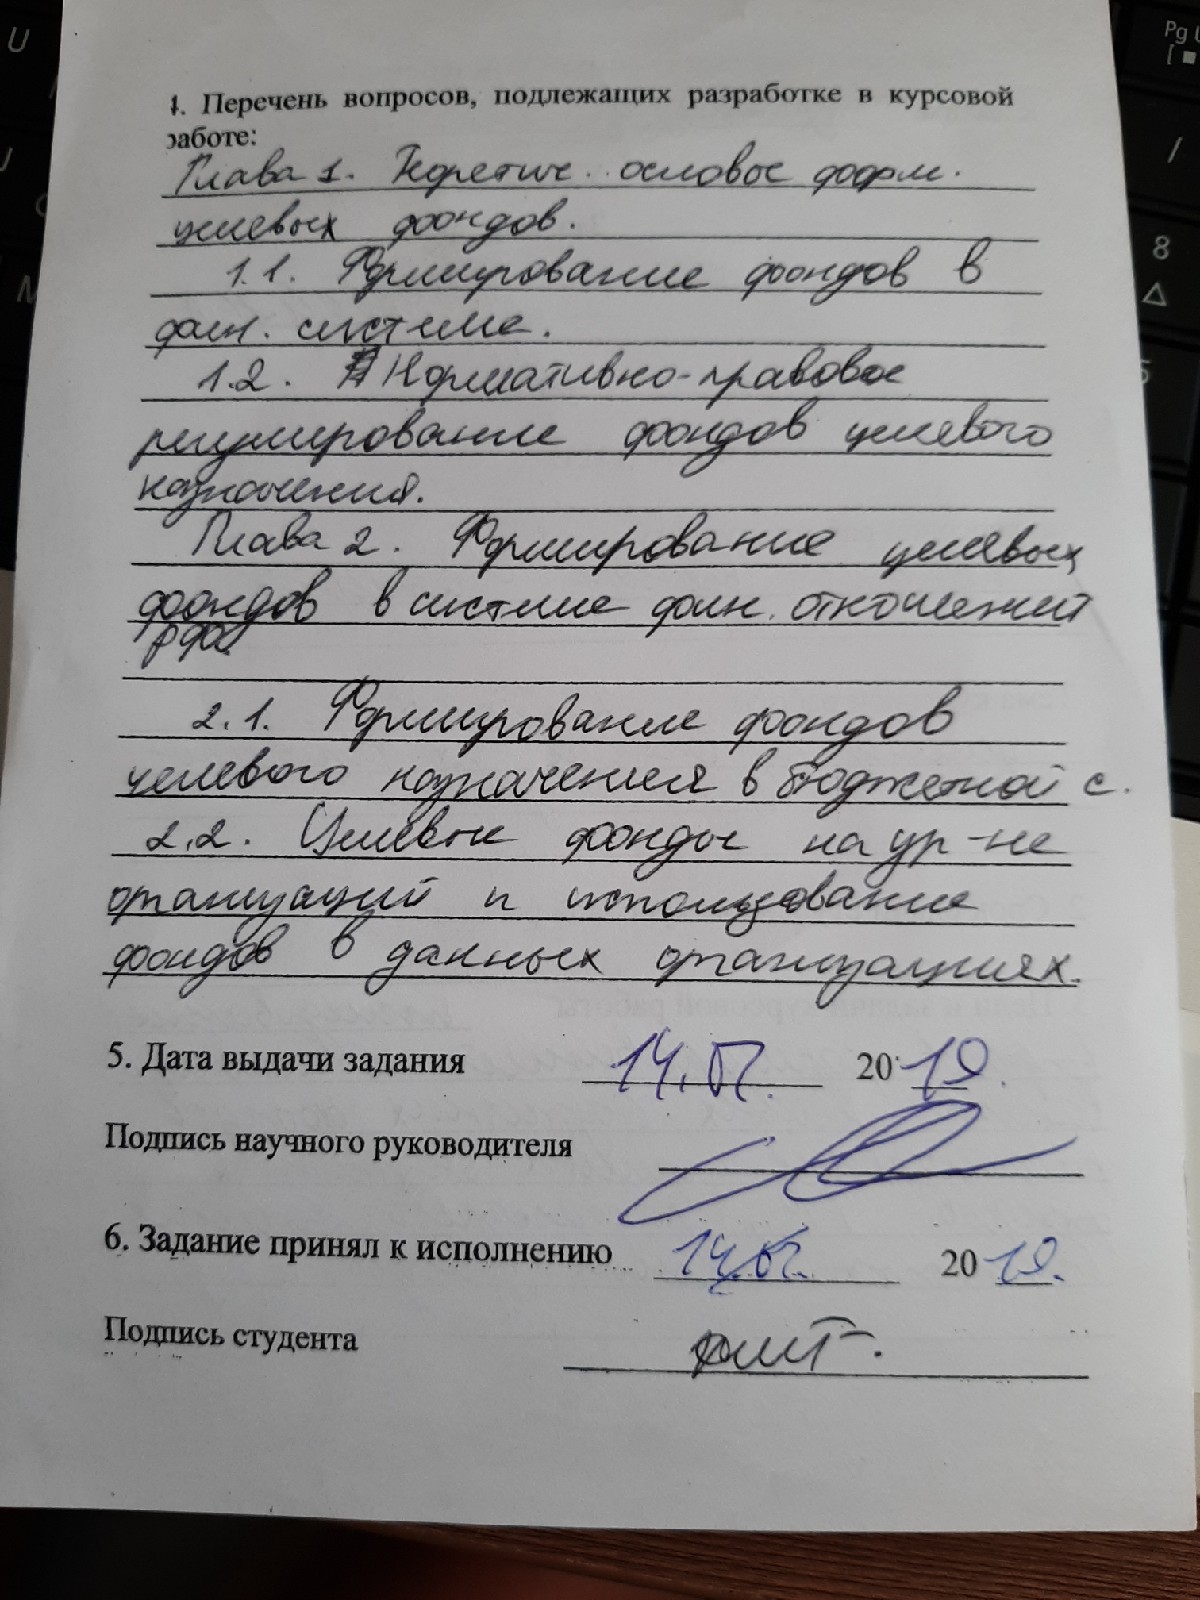 4. Перечень вопросов, подлежащих разработке в курсовой
работе:
Глава 1. Теоретич. основое форм.
целевых фондов.
1.1. Формирование фондов в
фин. системе.
1.2. Нормативно-правовое
регулирование фондов целевого
назначения.
Глава 2. Формирование целевых
фондов в системе фин. отношений
РФ.
2.1. Формирование фондов
целевого назначения в бюджетной с.
2.2. Целевые фонды на ур-не
организаций и использование
фондов в данных организациях.
5. Дата выдачи задания 14. 2019.
Подпись научного руководителя
6. Задание принял к исполнению 14. 2019.
Подпись студента
U
Pg U
8